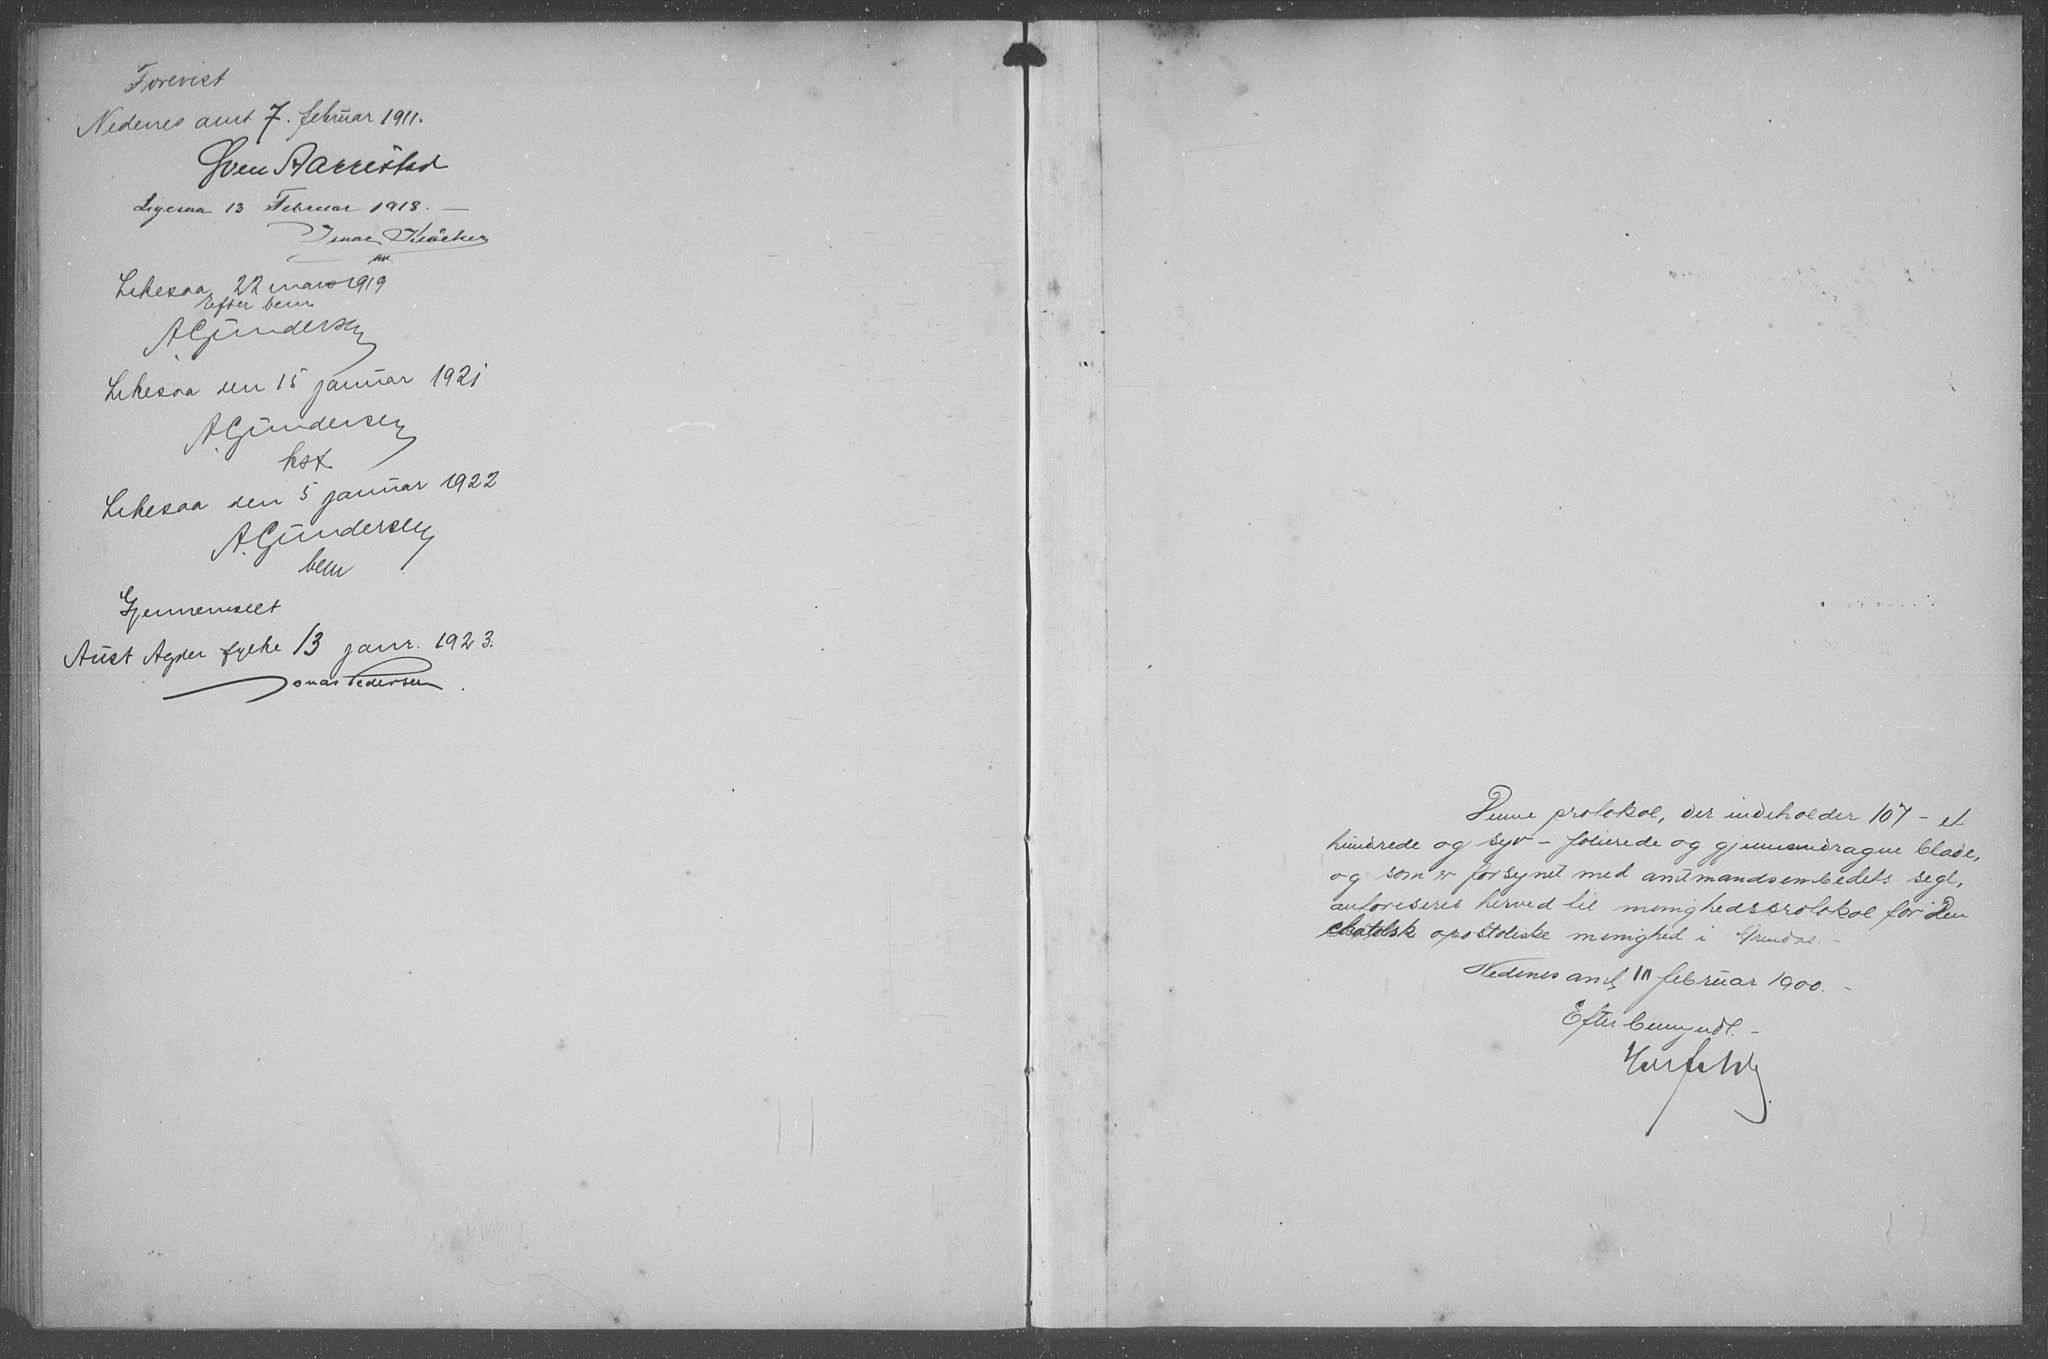 Forevist
Nedenes amt 7. februar 1911.
Sven Aarrestad
Ligesaa 13 Februar 1918. —
Likesaa 22 mars 1919
Efter bem
A. Gundersen
Likesaa den 15 januar 1921
A. Gundersen
kst.
Likesaa den 5 januar 1922
A. Gundersen
bem
Gjennemseet
Aust Agder fylke 13 janr. 1923.
Jonas Pedersen
Denne protokol, der indeholder 107 - et
hundrede og syv - folierede og gjennemdragne blade,
og som er forsynet med amtmandsembedets segl,
autoriseres herved til menighedsprotokol for Den
apostoliske menighed i
Nedenes amt, februar 1900. -
Efter bemyndl. -